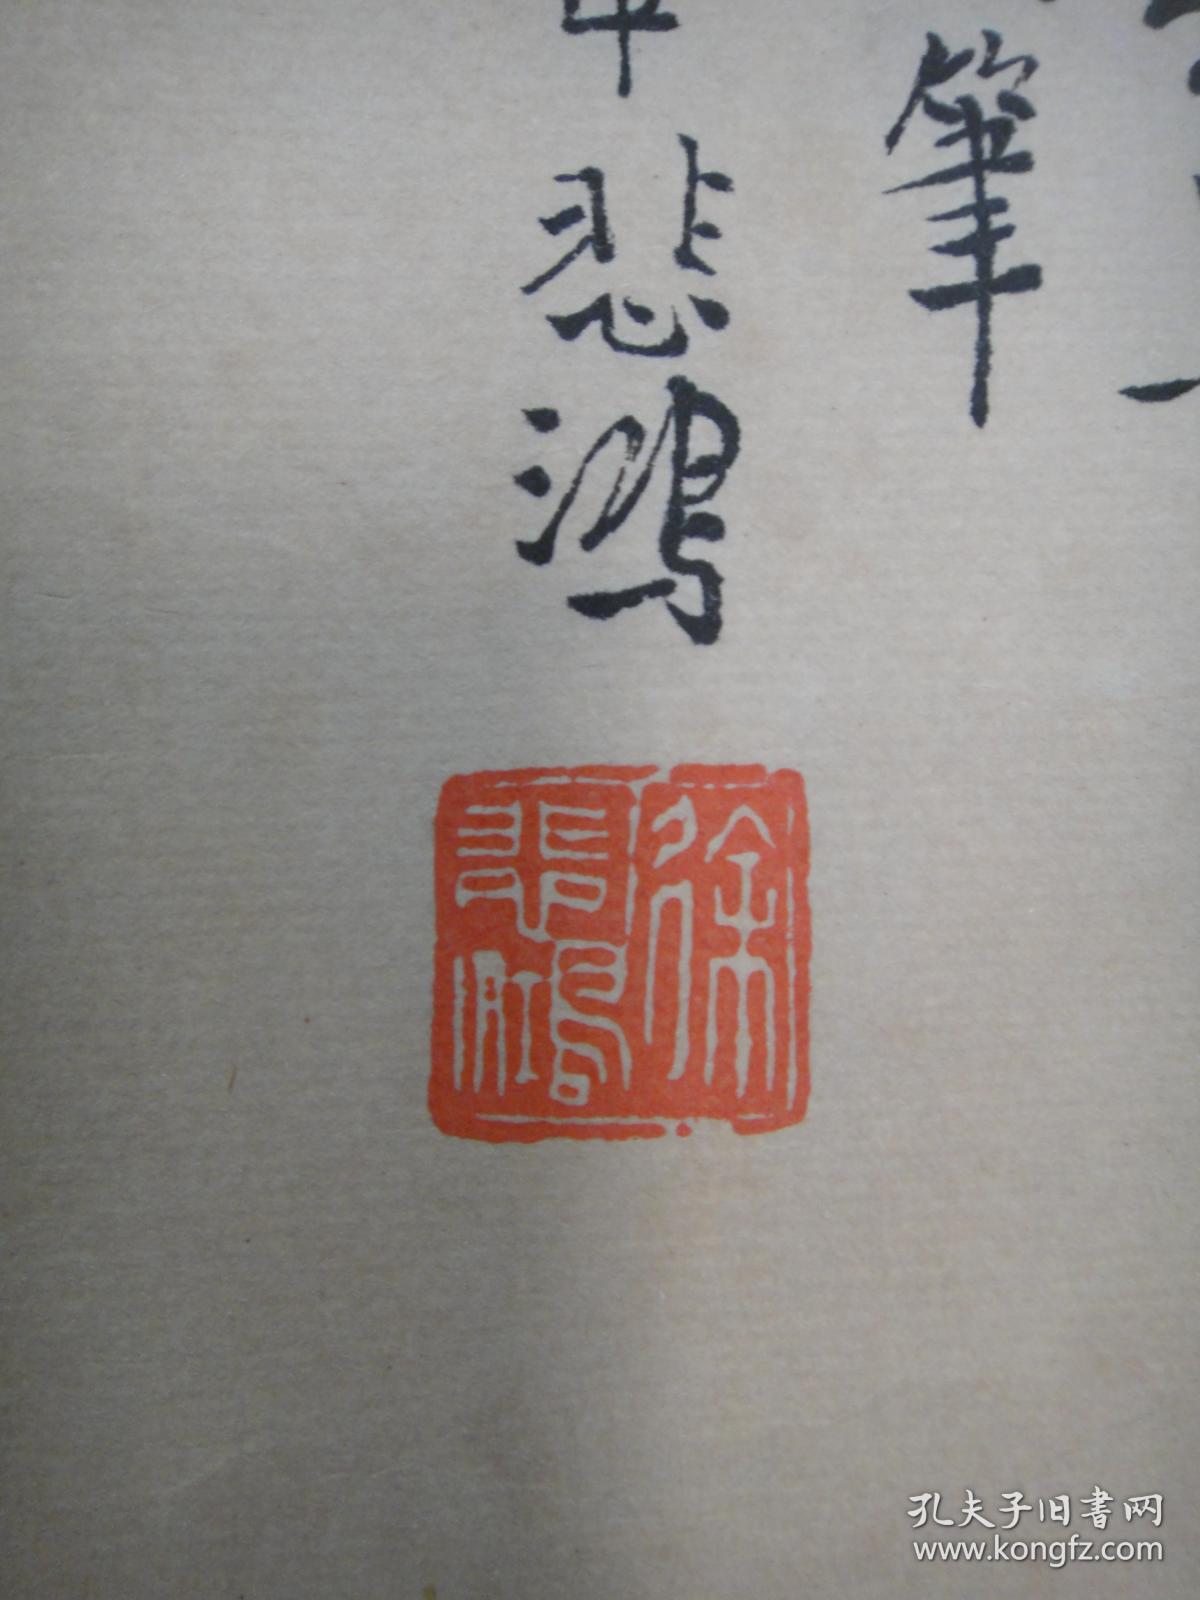 筆
悲鴻
徐
悲鴻
孔夫子旧書网
www.kongfz.com